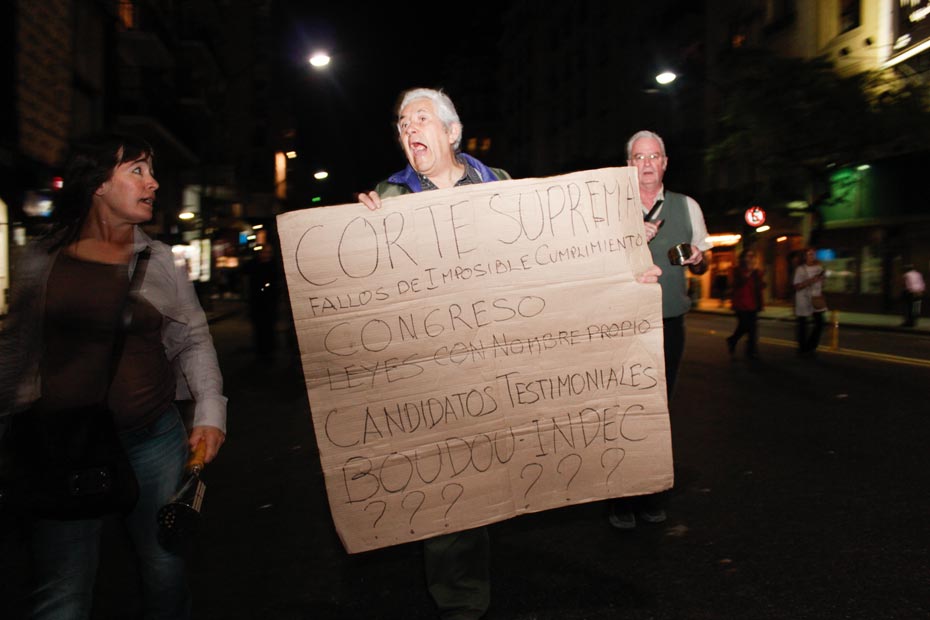 CORTE SUPREMA
FALLOS DE IMPOSIBLE CUMPLIMIENTO
CONGRESO
LEYES CON NOMBRE PROPIO
CANDIDATOS TESTIMONIALES
BOUDOU-INDEC
? ? ? ? ? ?